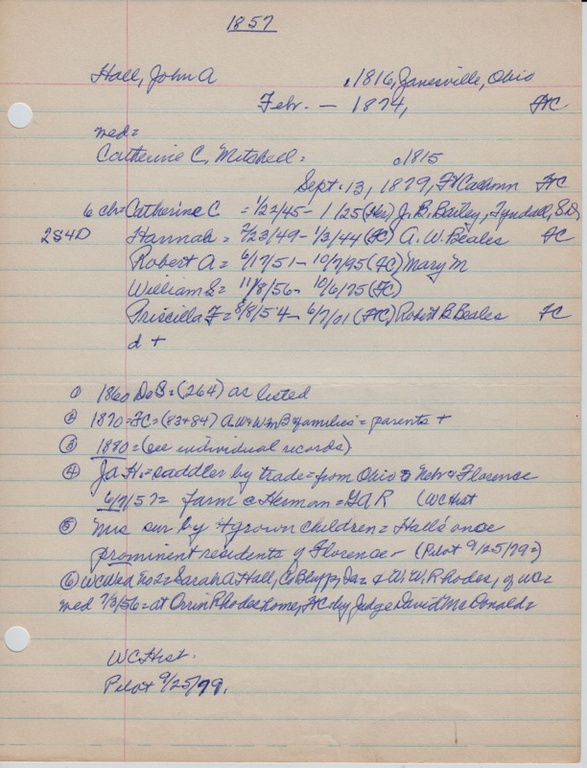 1857
Hall, John A c1816, Zanesville, Ohio
Febr. — 1874, FC
med=
Catherine C, Mitchell= c1815
Sept. 13, 1879, Ft Calhoun FC
6 ch= Catherine C = 1/22/45 - 1/25 (Her) J. B. Bailey, Tyndall, S.D.
2S4D Hannah = 2/23/49 - 1/3/44 (FC) A. W. Beales FC
Robert A = 6/17/51 - 10/7/95 (FC) Mary M
William S = 11/8/56 - 10/6/75 (FC)
Priscilla F = 8/8/54 - 6/7/01 (FC) Robert B. Beales FC
d +
① 1860 DoS = (264) as listed
② 1870 = FC = (83+84) A.W. & Wm B families = parents +
③ 1880 = (see individual records)
④ Ja H. = saddler by trade = from Ohio to Nebr & Florence
6/7/57 = farm c Herman = GAR (WC Hist
⑤ "Mrs sur by 4 grown children = Hall's once
prominent residents of Florence - (Pilot 9/25/79=)
⑥ WC Wed no2 = Sarah A Hall, C. Bluffs, Ia = & W. W. Rhodes, of WC =
med 7/3/56 = at Orrin Rhodes home, FC = by Judge David McDonald =
WC Hist.
Pilot 9/25/79.